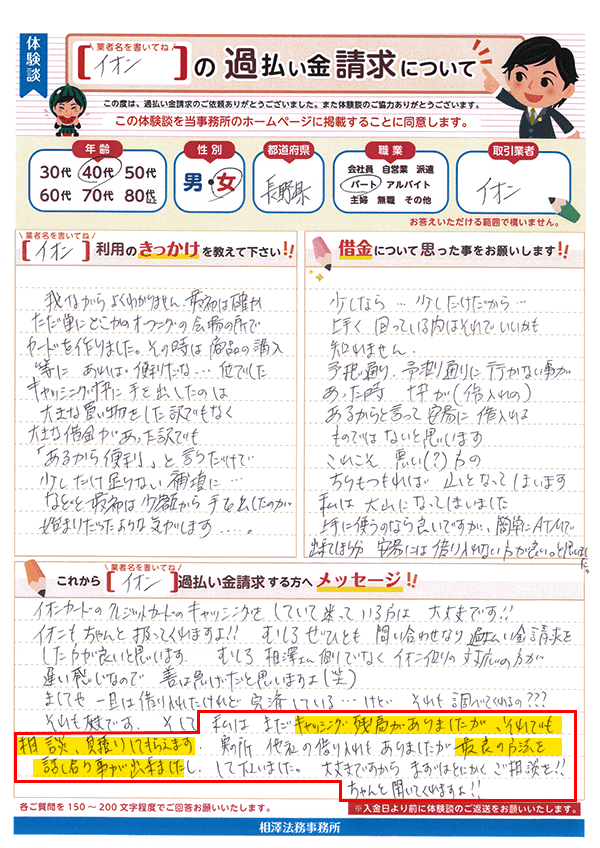 体験談
業者名を書いてね
[イオン]の過払い金請求について
この度は、過払い金請求のご依頼ありがとうございました。また体験談のご協力ありがとうございます。
この体験談を当事務所のホームページに掲載することに同意します。
年齢
30代 40代 50代
60代 70代 80代以上
性別
男・女
都道府県
長野県
職業
会社員 自営業 派遣
パート アルバイト
主婦 無職 その他
取引業者
イオン
お答えいただける範囲で構いません。
業者名を書いてね
[イオン]利用のきっかけを教えて下さい!!
我ながらよくわかりません。最初は確か
ただ単にどこかのオープニングの会場の所で
カードを作りました。その時は商品の購入
等にあれば便利だな…位でした
キャッシング枠に手を出したのは
大きな買い物をした訳でもなく
大きな借金があった訳でも
「あるから便利」と言うだけで
少しだけ足りない補填に…
などと最初は少額から手を出したのが
始まりだったような気がします…。
借金について思った事をお願いします!!
少しなら…少しだけだから…
上手く回っている内はそれでいいかも
知れません。
予想通り、予定通りに行かない事が
あった時 枠が(借入れの)
あるからと言って容易に借入れる
ものではないと思います
これこそ悪い(?)方の
ちりもつもれば山となってしまいます
私は大山になってしまいました
上手に使うのなら良いですが、簡単にATMで
出来てしまう分 容易には借り入れない方が良い。と思いました。
業者名を書いてね
これから[イオン]過払い金請求する方へメッセージ!!
イオンカードのクレジットカードのキャッシングをしていて迷っている方は大丈夫です!!
イオンもちゃんと払ってくれますよ!! むしろぜひとも問い合わせなり過払い金請求を
した方が良いと思います。むしろ相澤さん側でなくイオン側の対応の方が
遅い感じなので善は急げだと思いますよ(笑)
ましてや一旦は借り入れたけれど完済している…けど…それも調べてくれるの???
それも大丈夫です。そして私はまだキャッシング残高がありましたが、それでも
相談、見積りしてもらえます。実の所 他社の借り入れもありましたが最良の方法を
話し合う事が出来ましたし、して下いました。大丈夫ですからまずはとにかくご相談を!!
ちゃんと聞いてくれますよ!!
各ご質問を150～200文字程度でご回答お願いいたします。
※入金日より前に体験談のご返送をお願いいたします。
相澤法務事務所